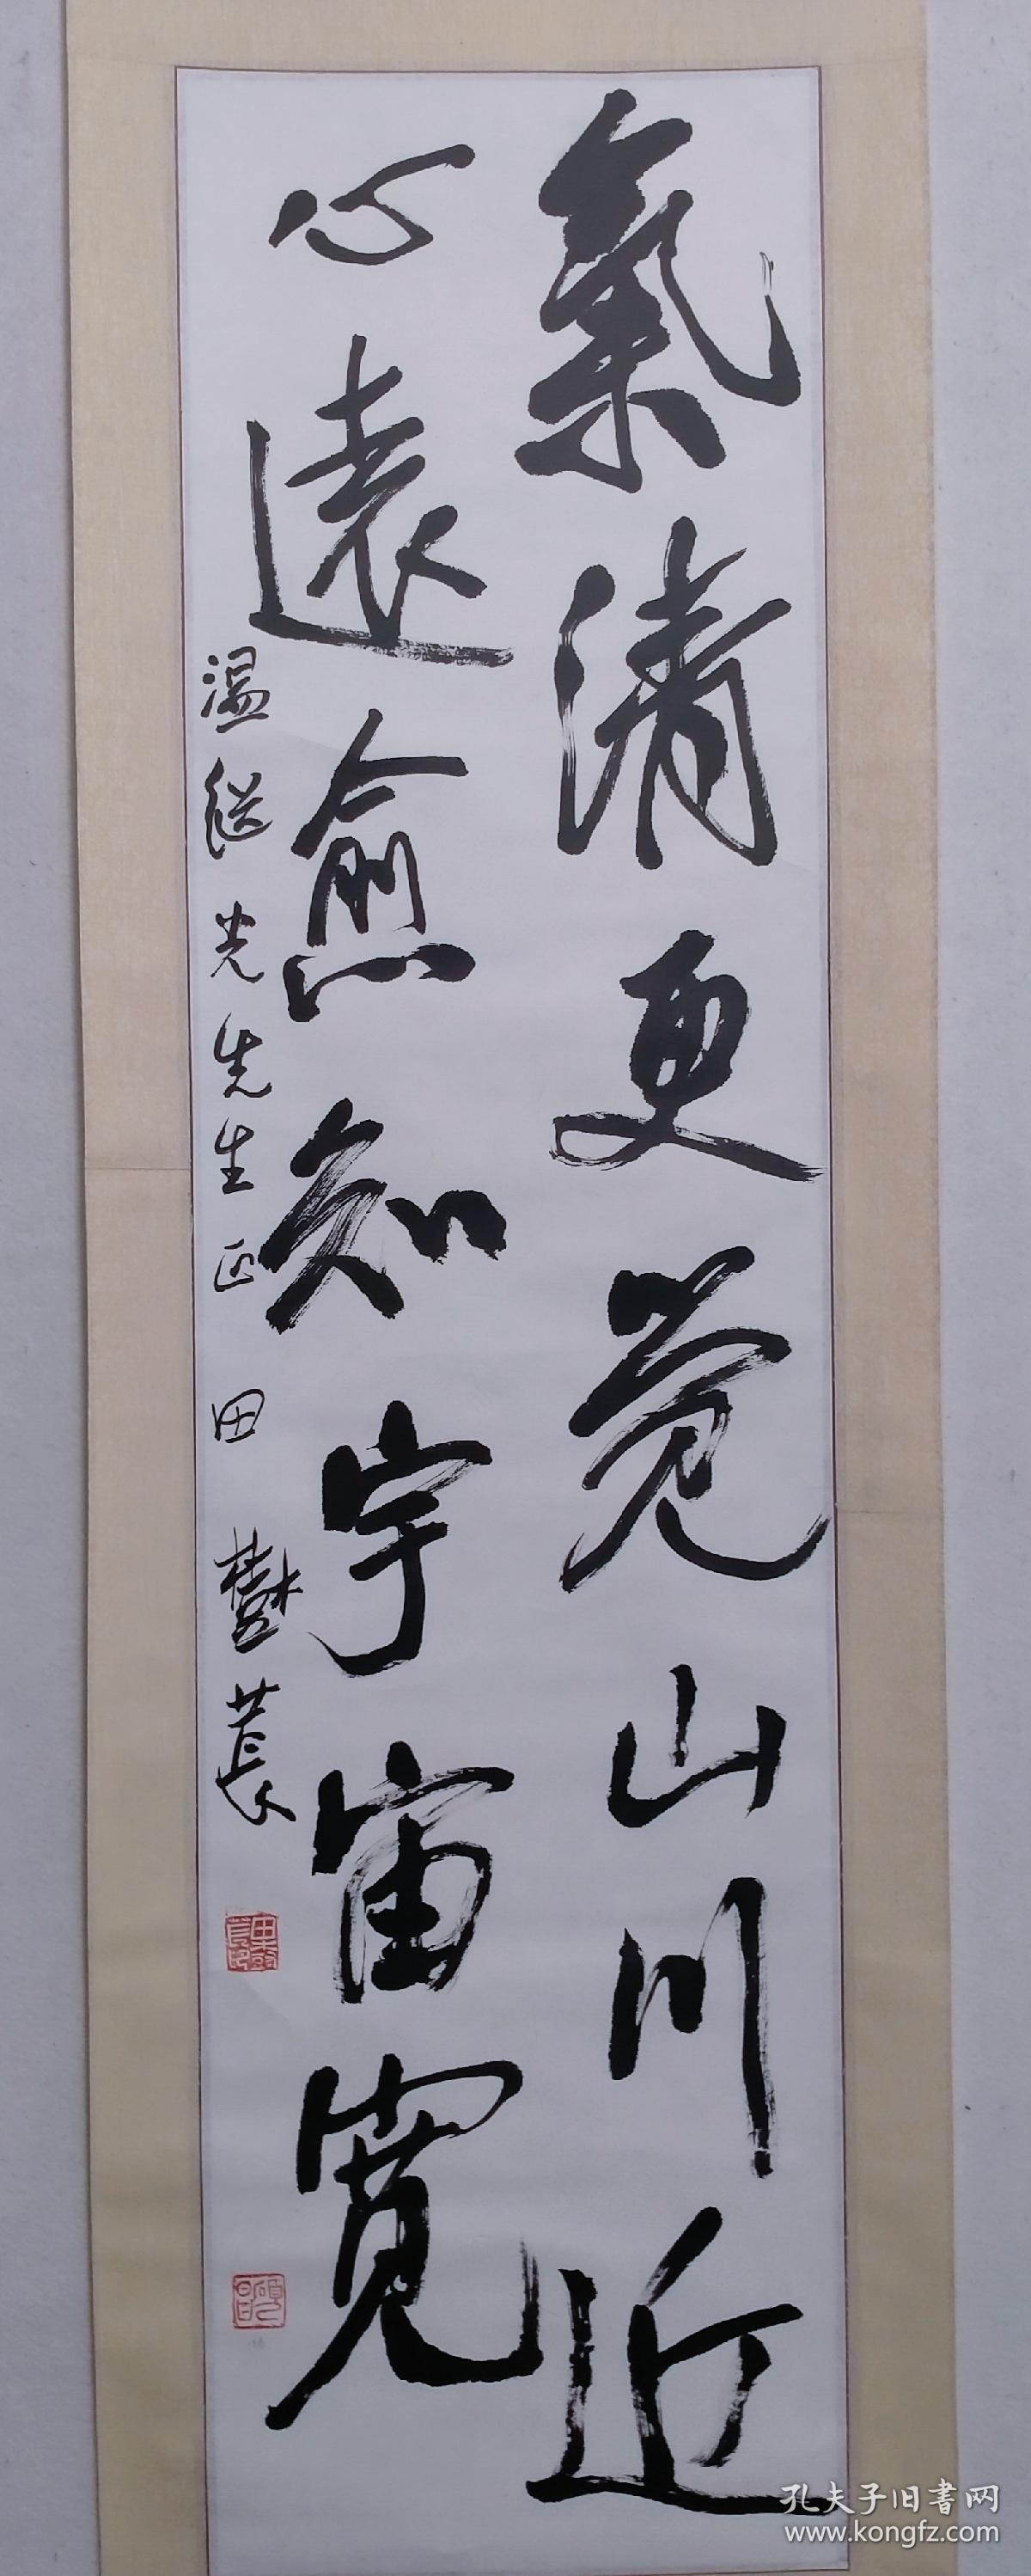 氣清更觉山川近
心遠愈知宇宙寬
温継光先生正 田樹萇
孔夫子旧書网
www.kongfz.com